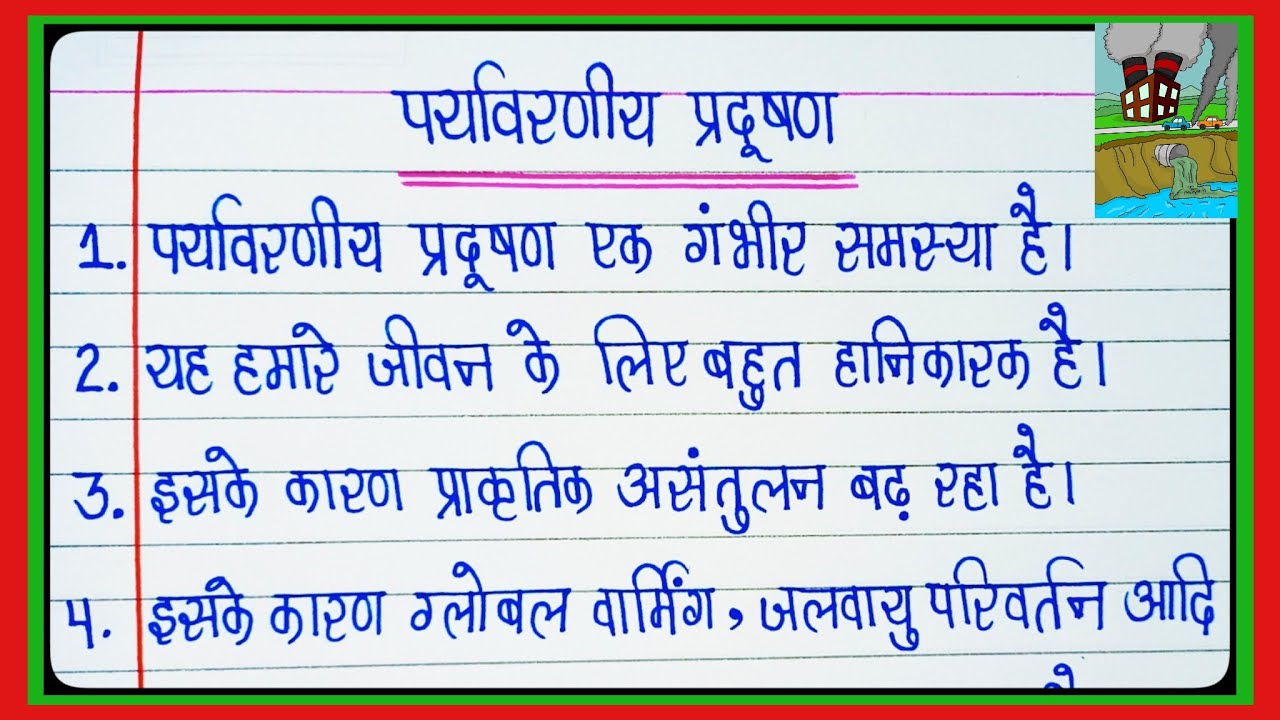 पर्यावरणीय प्रदूषण
1. पर्यावरणीय प्रदूषण एक गंभीर समस्या है।
2. यह हमारे जीवन के लिए बहुत हानिकारक है।
3. इसके कारण प्राकृतिक असंतुलन बढ़ रहा है।
4. इसके कारण ग्लोबल वार्मिंग, जलवायु परिवर्तन आदि